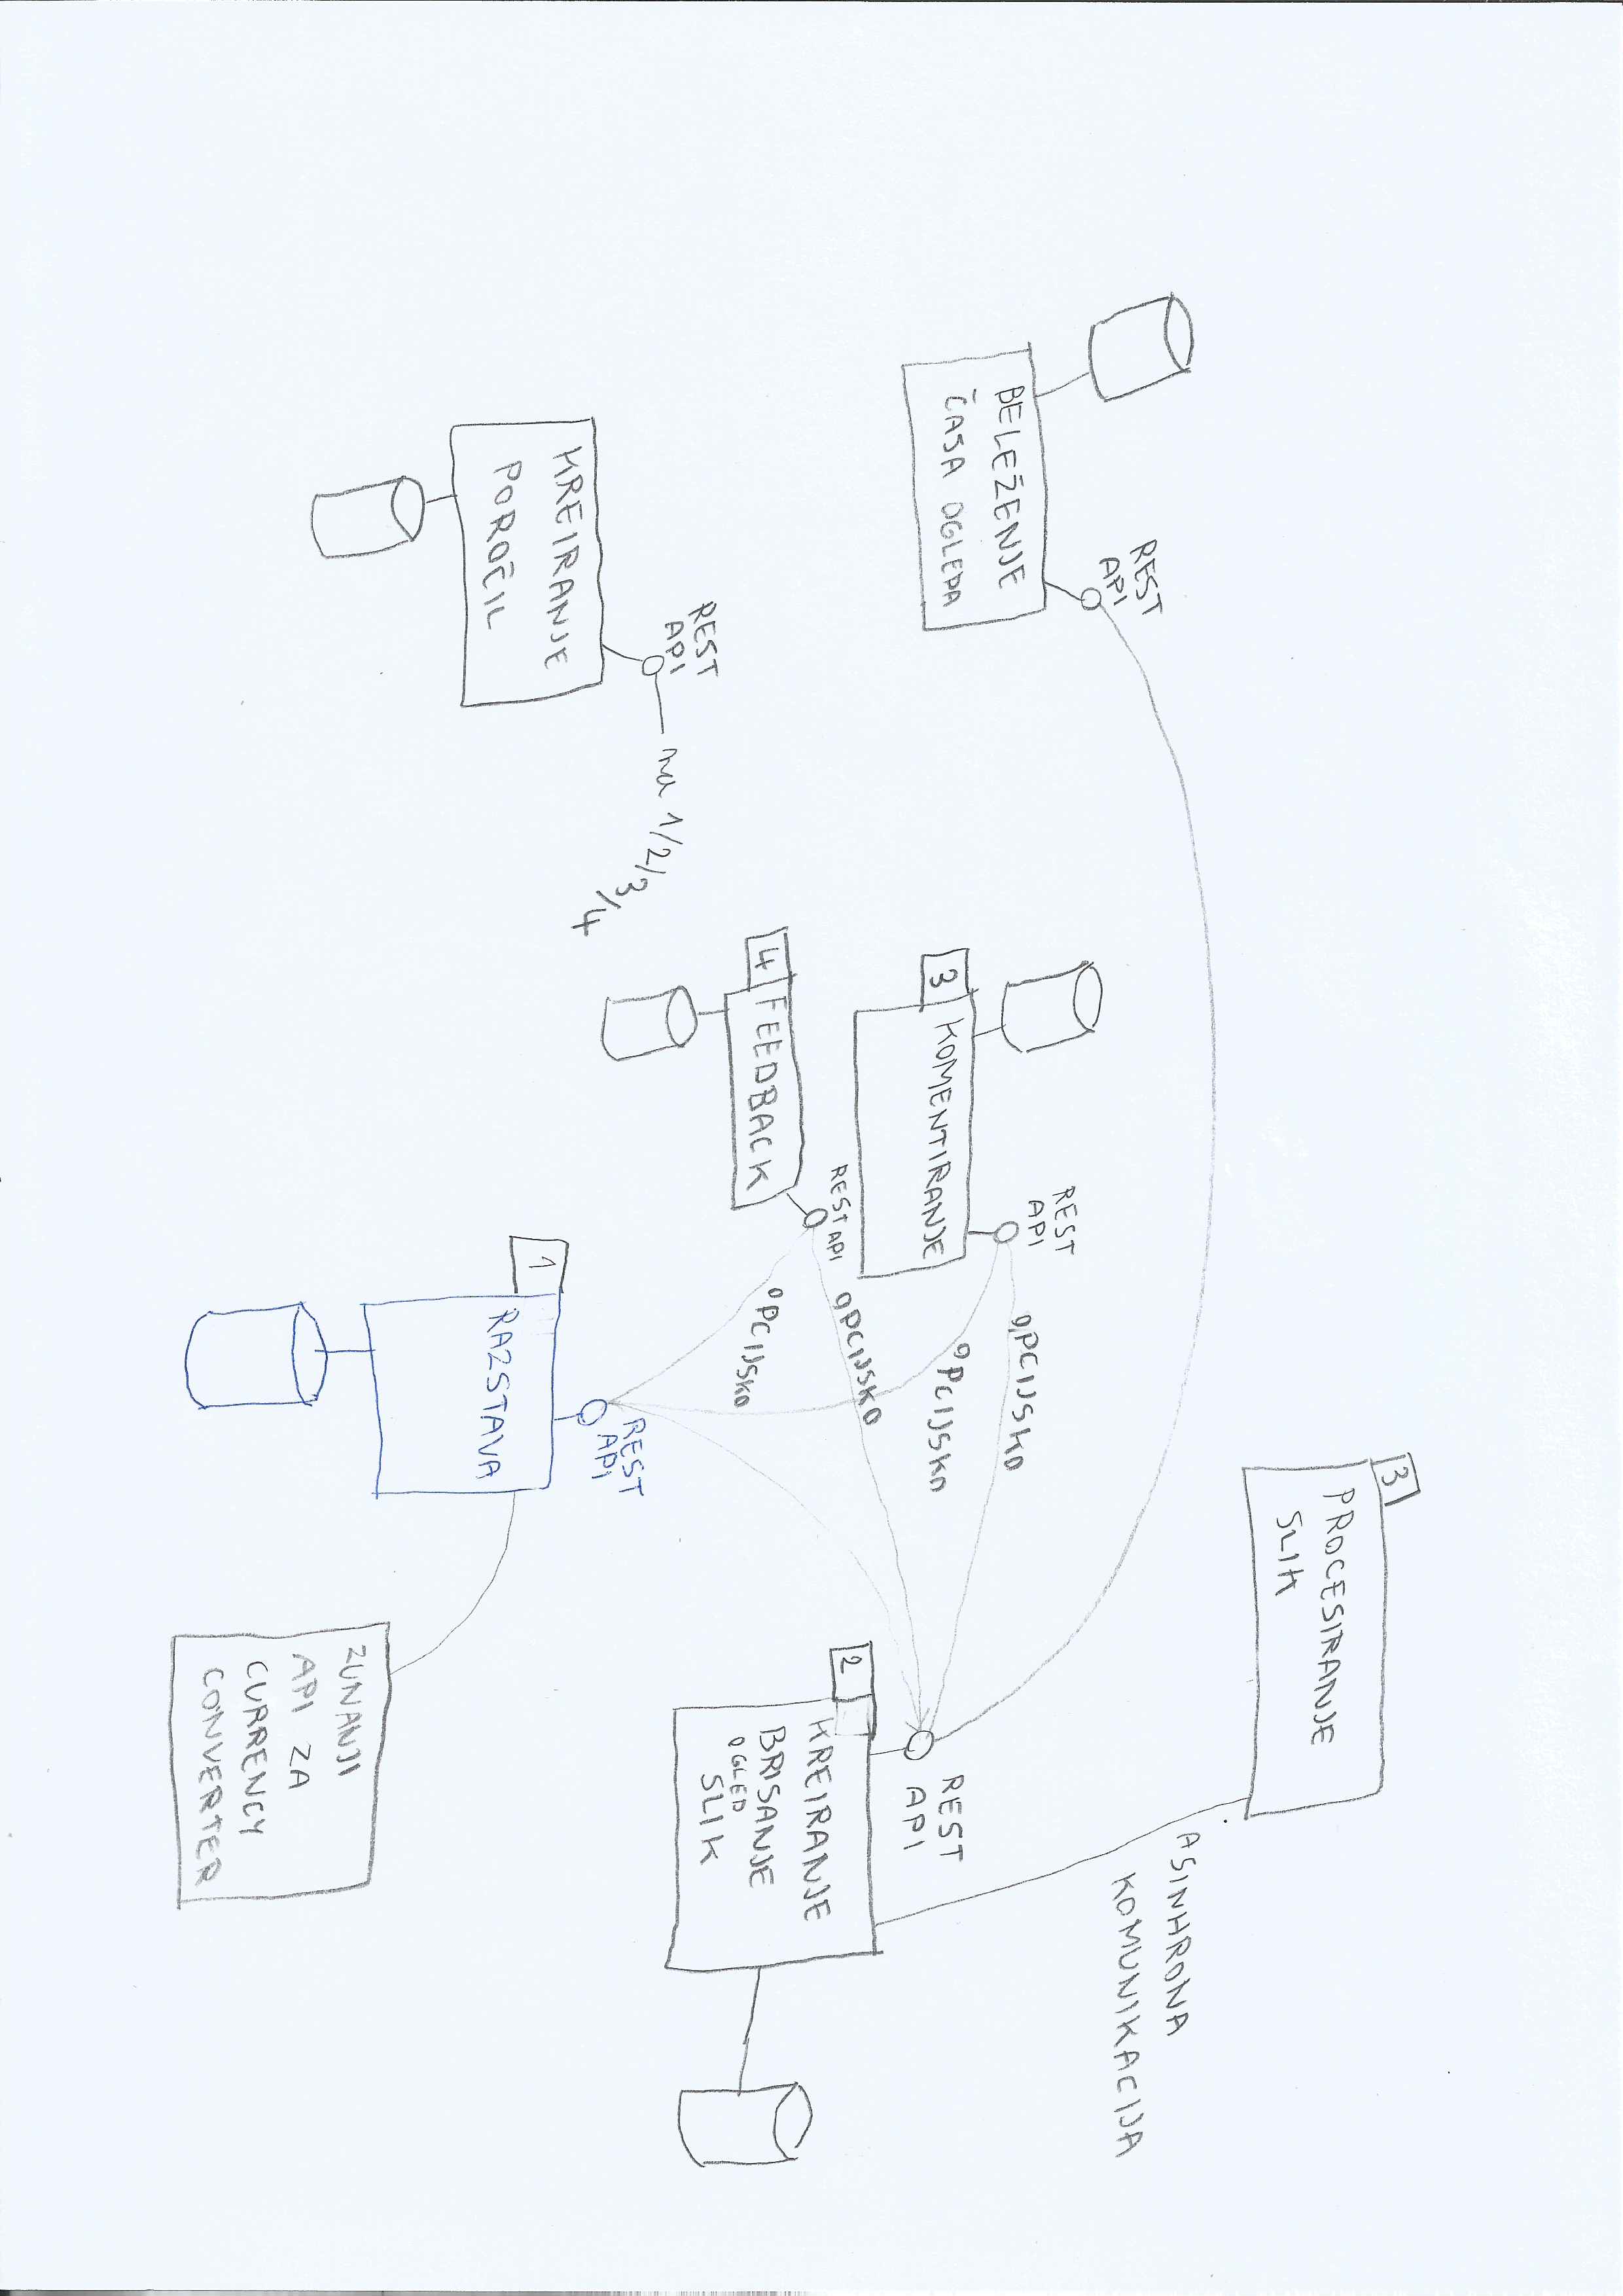 3
PROCESIRANJE
SLIK
ASINHRONA
KOMUNIKACIJA
REST
API
BELEŽENJE
ČASA OGLEDA
REST
API
3
KOMENTIRANJE
OPCIJSKO
OPCIJSKO
REST
API
2
KREIRANJE
BRISANJE
OGLED
SLIK
REST API
OPCIJSKO
4
FEEDBACK
OPCIJSKO
REST
API
na 1/2/3/4
KREIRANJE
POROČIL
REST
API
1
RAZSTAVA
ZUNANJI
API ZA
CURRENCY
CONVERTER